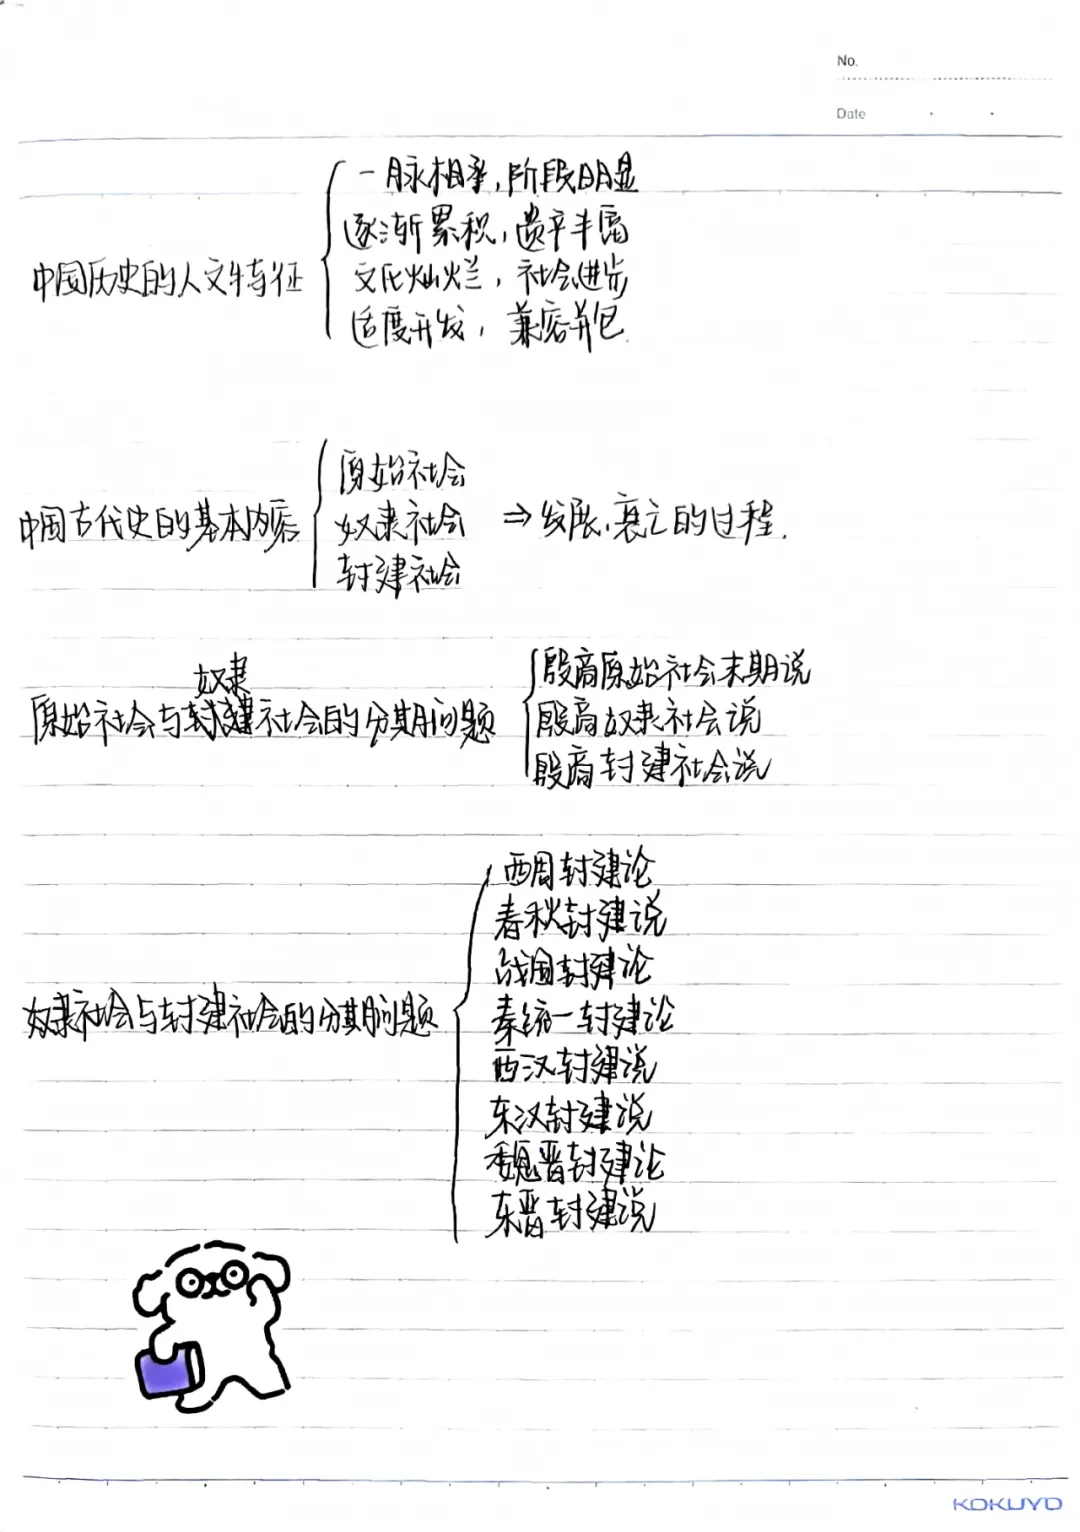 No.
Date
一脉相承,阶段明显
逐渐累积,遗产丰富
中国历史的人文特征
文化灿烂,社会进步
适度开发,兼容并包.
原始社会
中国古代史的基本内容
奴隶社会 ⇒发展、衰亡的过程.
封建社会
奴隶
原始社会与封建社会的分期问题
殷商原始社会末期说
殷商奴隶社会说
殷商封建社会说
西周封建论
春秋封建说
战国封建论
奴隶社会与封建社会的分期问题
秦统一封建论
西汉封建说
东汉封建说
魏晋封建论
东晋封建说
KOKUYO